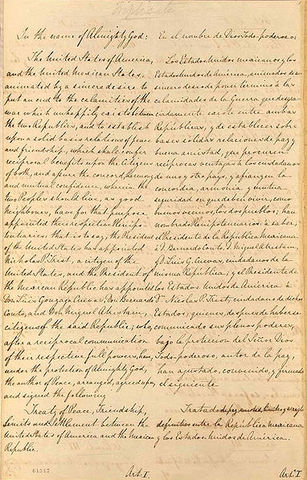 In the name of Almighty God:
The United States of America,
and the United Mexican States,
animated by a sincere desire to
put an end to the calamities of the
war which unhappily exists between
the two Republics, and to establish
upon a solid basis relations of peace
and friendship, which shall confer
reciprocal benefits upon the citizens
of both, and assure the concord, harmony
and mutual confidence, wherein the
two Peoples should live, as good
neighbours, have for that purpose
appointed their respective Plenipo-
tentiaries: that is to say, the President
of the United States has appointed
Nicholas P. Trist, a citizen of the
United States, and the President of
the Mexican Republic has appointed
Don Luis Gonzaga Cuevas, Don Bernardo
Couto, and Don Miguel Atristain,
citizens of the said Republic; who,
after a reciprocal communication
of their respective full powers, have,
under the protection of Almighty God,
the author of Peace, arranged, agreed upon,
and signed the following
Treaty of Peace, Friendship,
Limits and Settlement between the
United States of America and the Mexican
Republic.
Art: I.
En el nombre de Dios Todopoderoso
Los Estados Unidos mexicanos y los
Estados Unidos de América, animados de un
sincero deseo de poner término á las
calamidades de la Guerra que desgra-
ciadamente existe entre ambas
Repúblicas, y de establecer sobre
bases sólidas relaciones de paz y
buena amistad, que procuren
recíprocas ventajas á los ciudadanos
de uno y otro pays, y afianzen la
concordia, armonia, y mutua
seguridad en que deben vivir, como
buenos vecinos, los dos pueblos; han
nombrado Plenipotenciarios á saber,
el Presidente de la República Mexicana
á D. Bernardo Couto, D. Miguel Atristain,
y D. Luis G. Cuevas, ciudadanos de la
misma República; y el Presidente de
los Estados Unidos de América á
D. Nicolas P. Trist, ciudadano de dichos
Estados; quienes, despues de haberse
comunicado sus plenos poderes,
bajo la proteccion del Señor Dios
Todopoderoso, autor de la paz,
han ajustado, convenido, y firmado
el siguiente
Tratado de paz, amistad, límites y arreglo
definitivo entre la República mexicana
y los Estados Unidos de América.
Art: I.